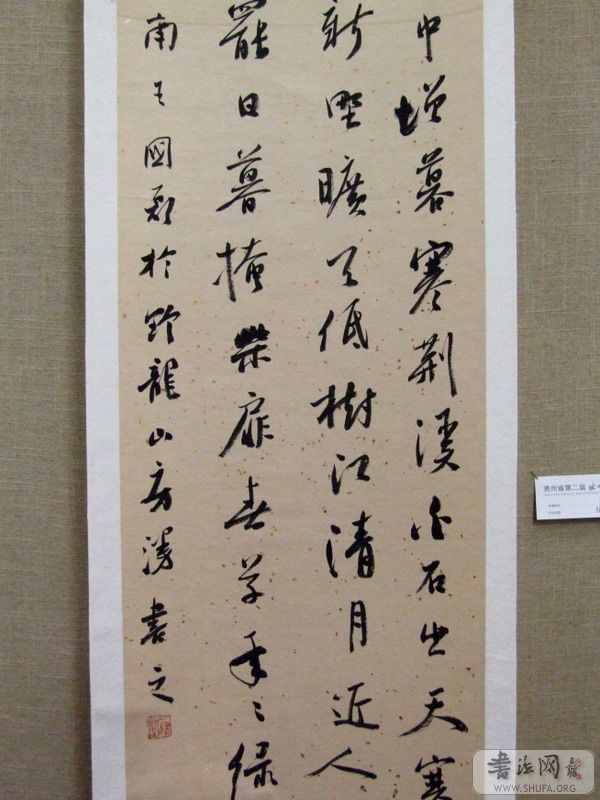 中增暮寒荆溪白石出天寒
新野曠天低樹江清月近人
罷日暮掩柴扉春草年々綠
南 國 於野龍山房 書之
贵州省第二届
書法网
WWW.SHUFA.ORG